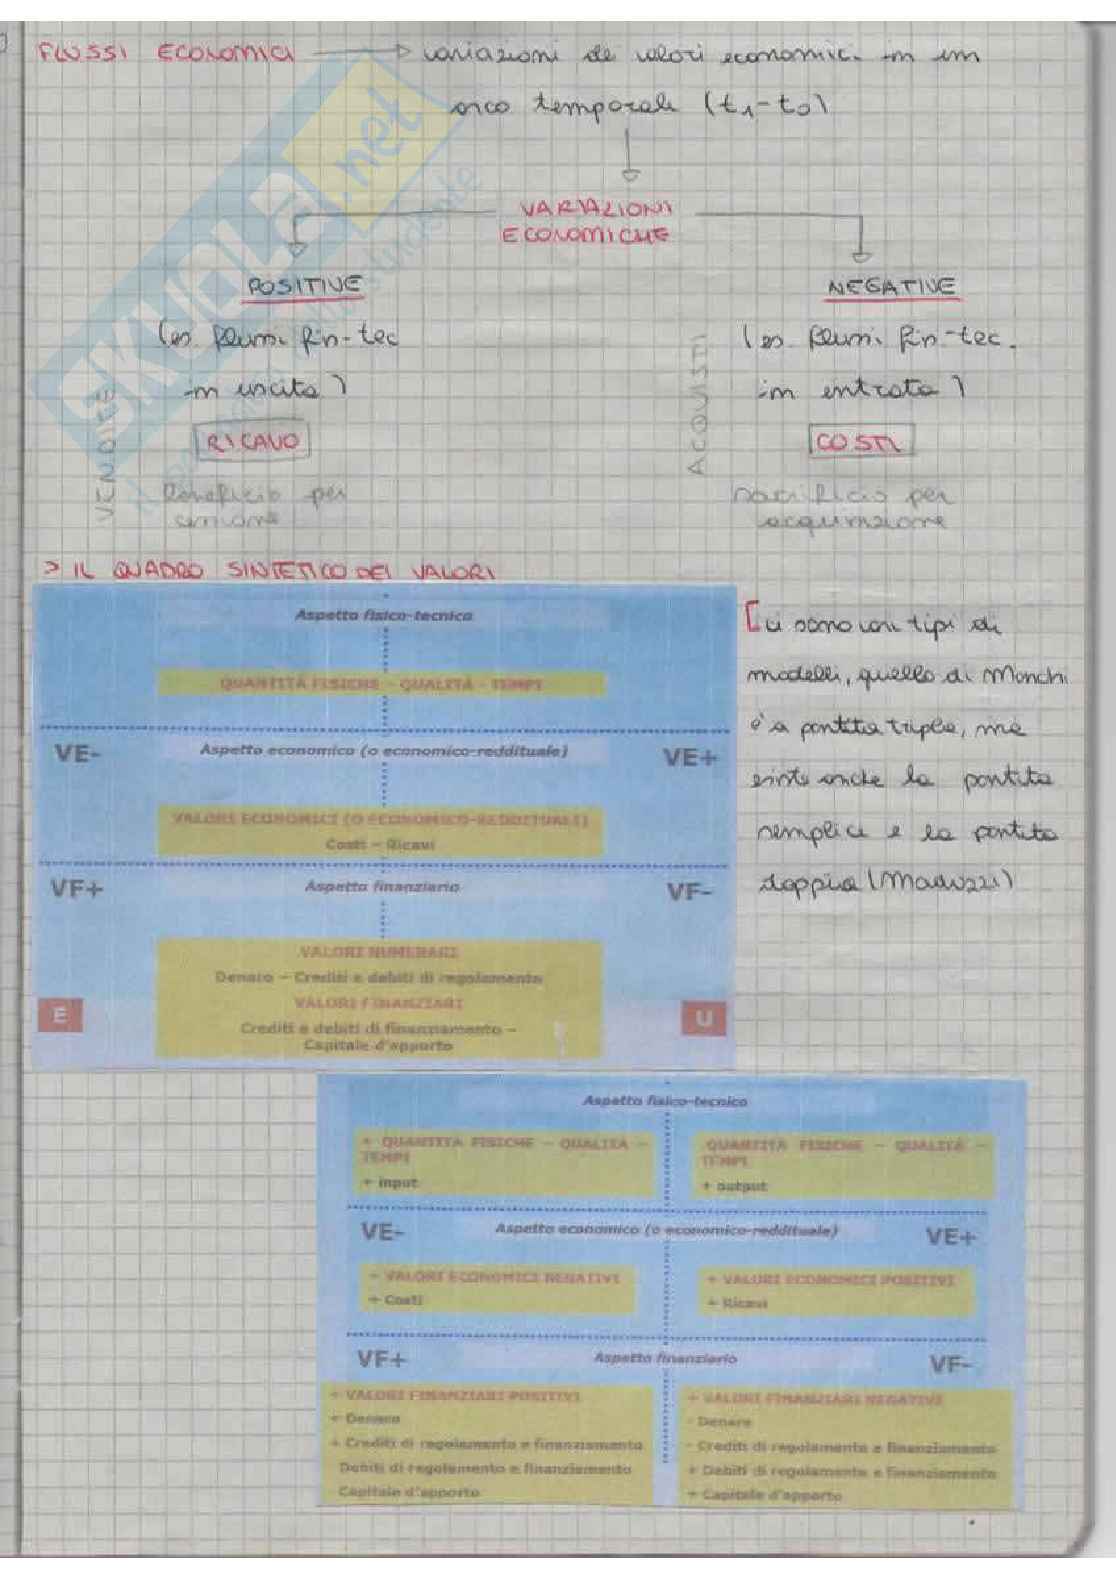 FLUSSI ECONOMICI → variazioni de valori economici in un
arco temporale (t₁-t₀)
VARIAZIONI
ECONOMICHE
POSITIVE
(es. flussi fin-tec
in uscita)
VENDITE
RICAVO
Beneficio per
cessione
NEGATIVE
(es. flussi fin-tec.
in entrata)
ACQUISTI
COSTI
sacrificio per
acquisizione
> IL QUADRO SINTETICO DEI VALORI
Aspetto fisico-tecnico
QUANTITÀ FISICHE - QUALITÀ - TEMPI
VE- Aspetto economico (o economico-reddituale) VE+
VALORI ECONOMICI (O ECONOMICO-REDDITUALI)
Costi - Ricavi
VF+ Aspetto finanziario VF-
VALORI NUMERARI
Denaro - Crediti e debiti di regolamento
VALORI FINANZIARI
E U
Crediti e debiti di finanziamento -
Capitale d'apporto
[ci sono vari tipi di
modelli, quello di
è a partita tripla, ma
esiste anche la partita
semplice e la partita
doppia
Aspetto fisico-tecnico
+ QUANTITÀ FISICHE - QUALITÀ -
TEMPI
+ input
QUANTITÀ FISICHE - QUALITÀ -
TEMPI
+ output
VE- Aspetto economico (o economico-reddituale) VE+
- VALORI ECONOMICI NEGATIVI
+ Costi
+ VALORI ECONOMICI POSITIVI
+ Ricavi
VF+ Aspetto finanziario VF-
+ VALORI FINANZIARI POSITIVI
+ Denaro
+ Crediti di regolamento e finanziamento
Debiti di regolamento e finanziamento
Capitale d'apporto
+ VALORI FINANZIARI NEGATIVI
- Denaro
- Crediti di regolamento e finanziamento
+ Debiti di regolamento e finanziamento
+ Capitale d'apporto
SKUOLA.net